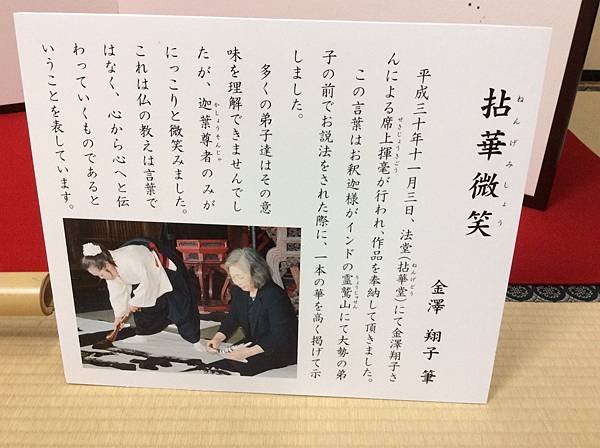 拈華微笑
ねんげみしょう
金澤 翔子 筆
平成三十年十一月三日、法堂(拈華堂)にて金澤翔子さ
ねんげどう
んによる席上揮毫が行われ、作品を奉納して頂きました。
せきじょうきごう
この言葉はお釈迦様がインドの霊鷲山にて大勢の弟
りょうじゅせん
子の前でお説法をされた際に、一本の華を高く掲げて示
しました。
多くの弟子達はその意
味を理解できませんでし
たが、迦葉尊者のみが
かしょうそんじゃ
にっこりと微笑みました。
これは仏の教えは言葉で
はなく、心から心へと伝
わっていくものであると
いうことを表しています。